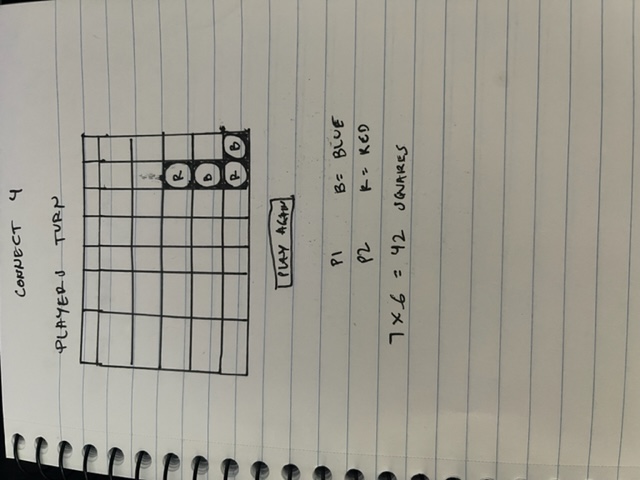 CONNECT 4
PLAYERS TURN
R
B
R B
PLAY AGAIN
P1 B= BLUE
P2 R= RED
7 x 6 = 42 SQUARES